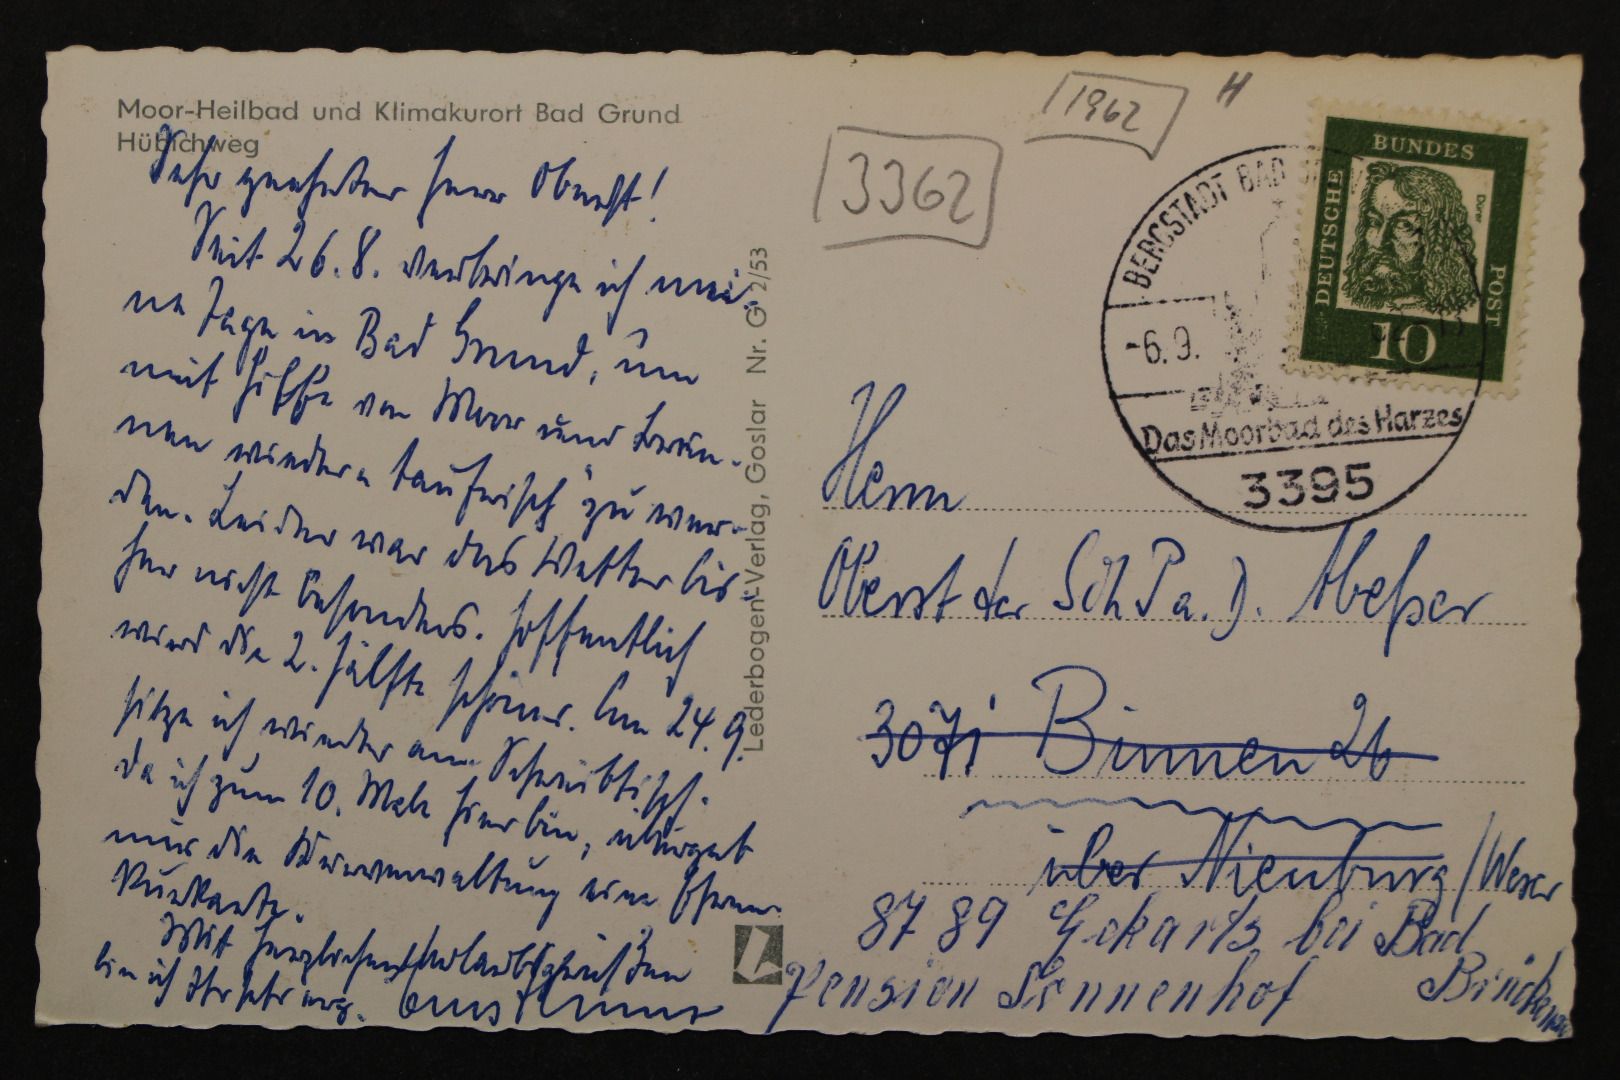 Moor-Heilbad und Klimakurort Bad Grund
Hübichweg
Sehr geehrter Herr Oberst!
Seit 26.8. verbringe ich mei-
ne Tage in Bad Grund, um
mit Hilfe von Moor und Brun-
nen wieder „taufrisch" zu wer-
den. Leider war das Wetter bis-
her nicht besonders. Hoffentlich
wird die 2. Hälfte schöner. Am 24.9.
sitze ich wieder am Schreibtisch.
Da ich zum 10. Male hier bin, übergab
mir die Kurverwaltung eine Ehren-
kurkarte.
Mit herzlichen Urlaubsgrüßen
bin ich Ihr sehr erg.
Lederbogen-Verlag, Goslar Nr. G 2/53
3362
1962
H
DEUTSCHE
BUNDES
POST
Dürer
10
BERGSTADT BAD
-6.9.
Das Moorbad des Harzes
3395
Herrn
Oberst der SchP a. D.
3071 Binnen 26
über Nienburg/Weser
8789 Eckarts bei Bad
Brückenau
Pension Sonnenhof